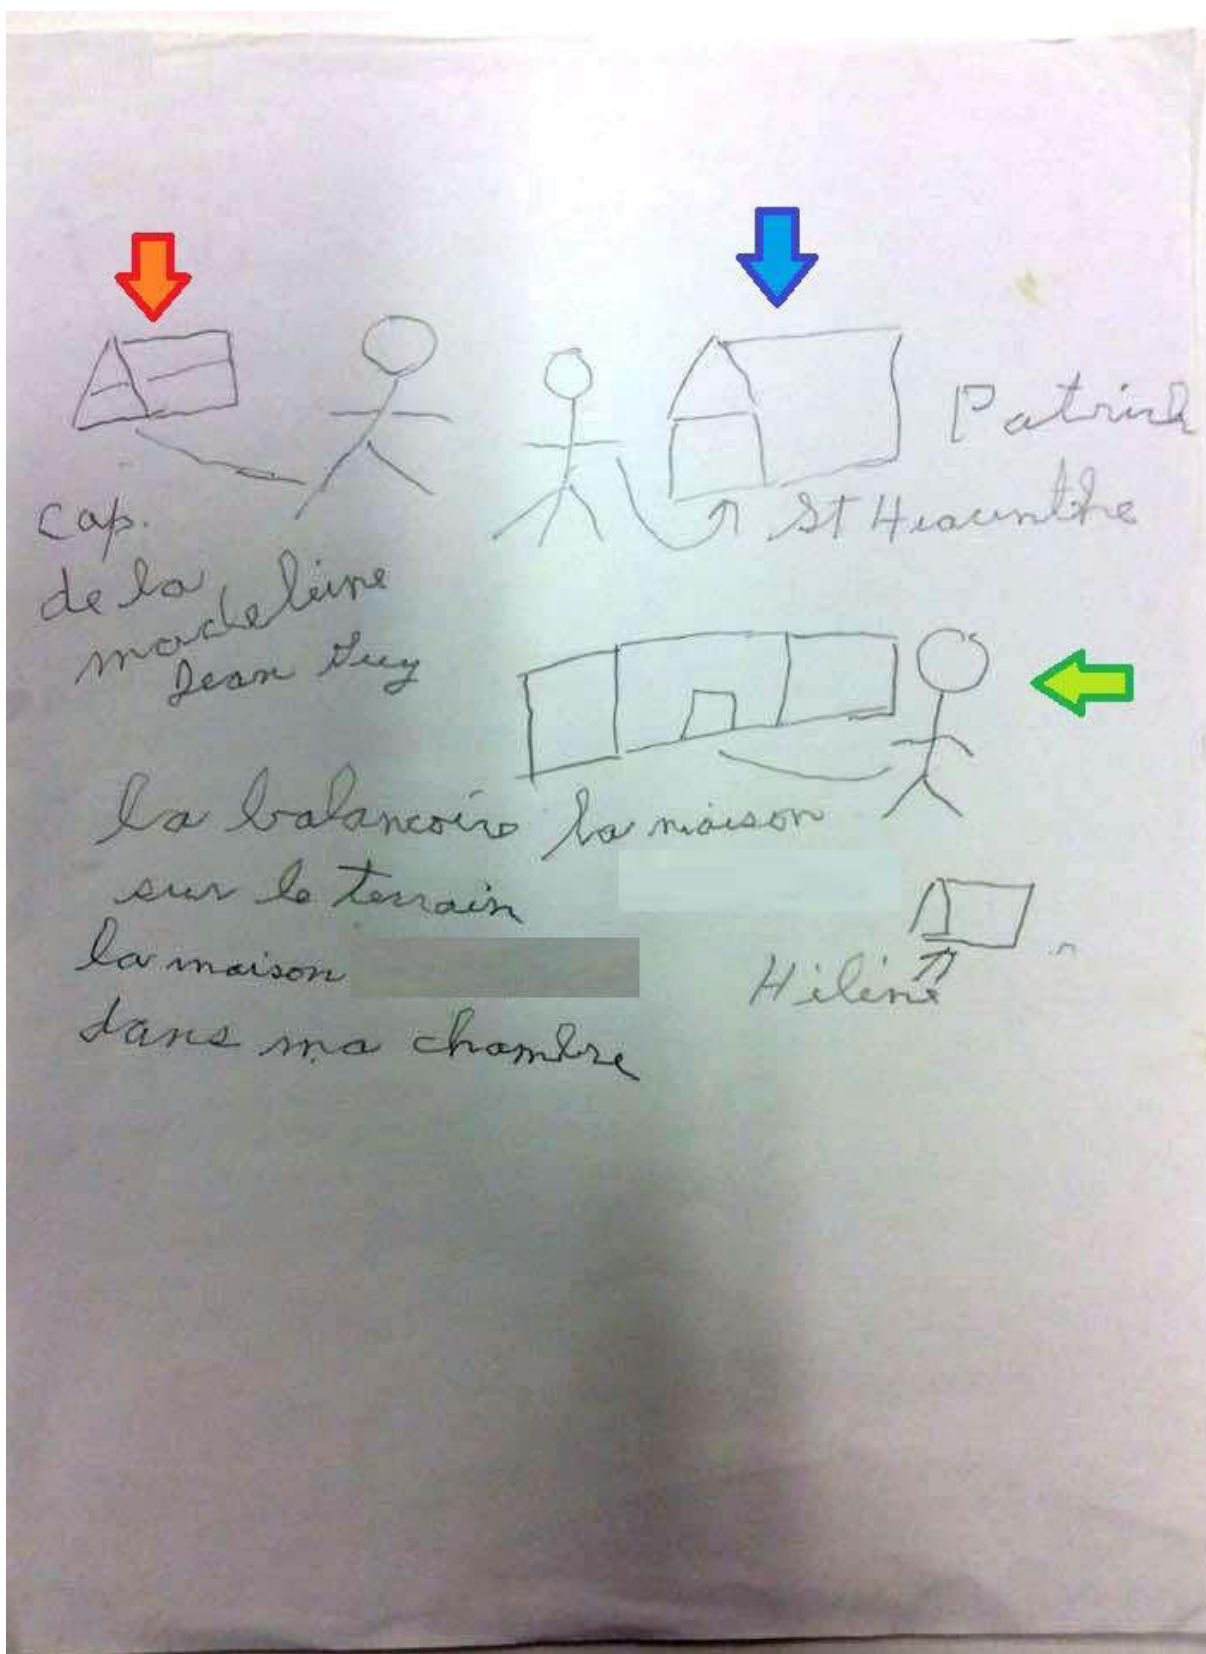 Patrick
St Hiacinthe
Cap.
de la
madeleine
Jean Guy
la balancoire la maison
sur le terrain
la maison
dans ma chambre
Hélène